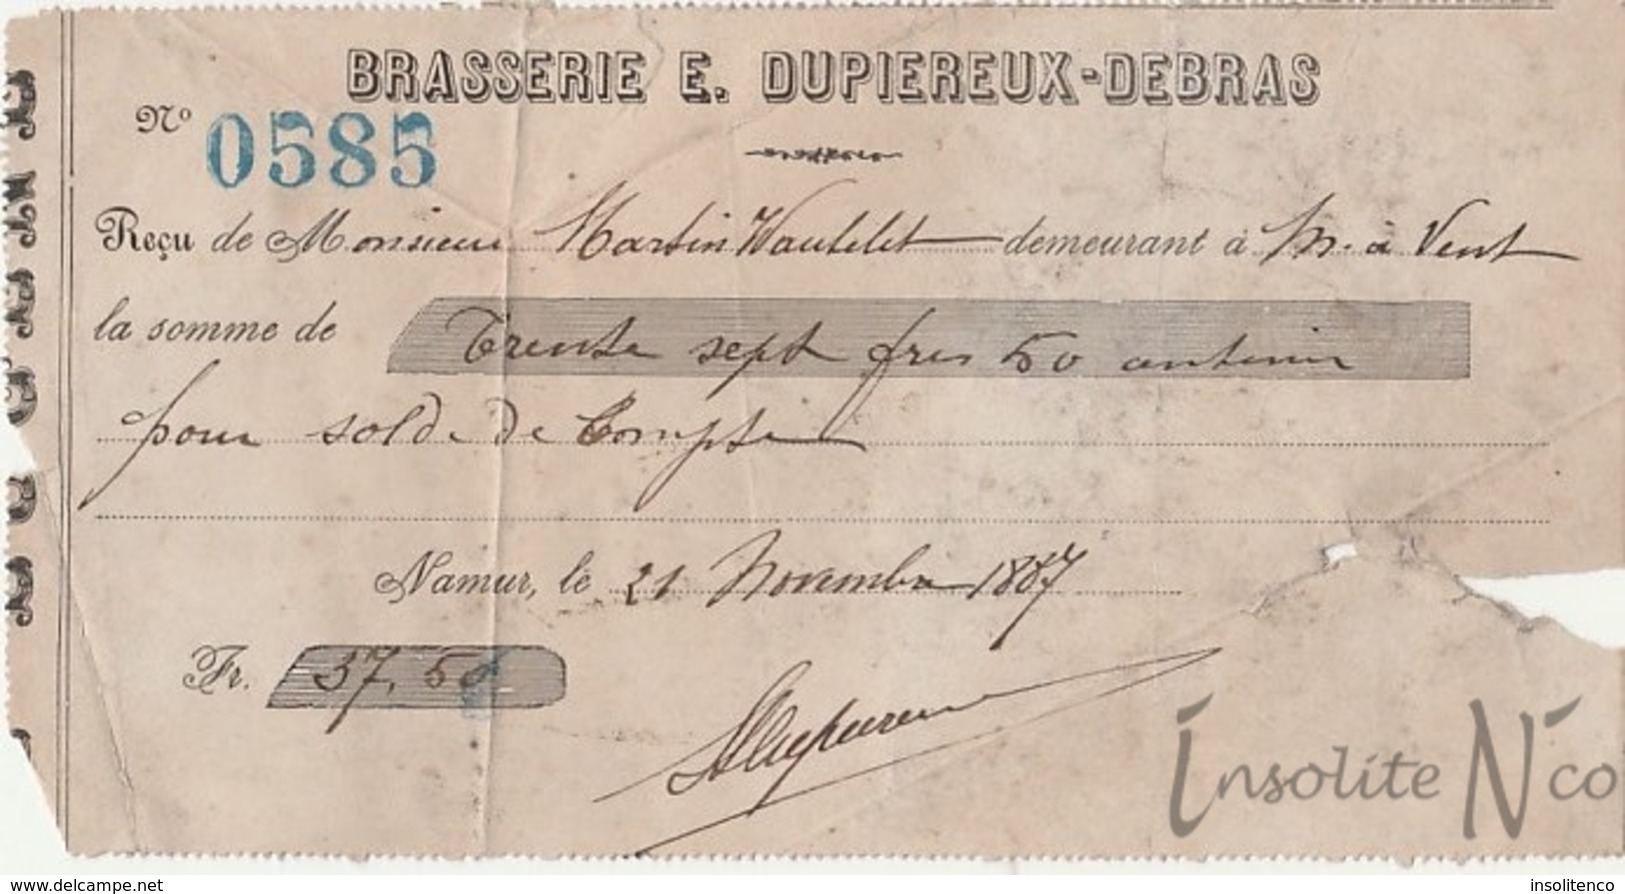 BRASSERIE E. DUPIEREUX-DEBRAS
No 0585
Reçu de Monsieur Martin Wautelet demeurant à M. à Vent
la somme de Trente sept frcs 50 centimes
pour solde de Compte
Namur, le 21 Novembre 1887
Fr. 37,50
Dupiereux
insolite N'co
www.delcampe.net
insolitenco